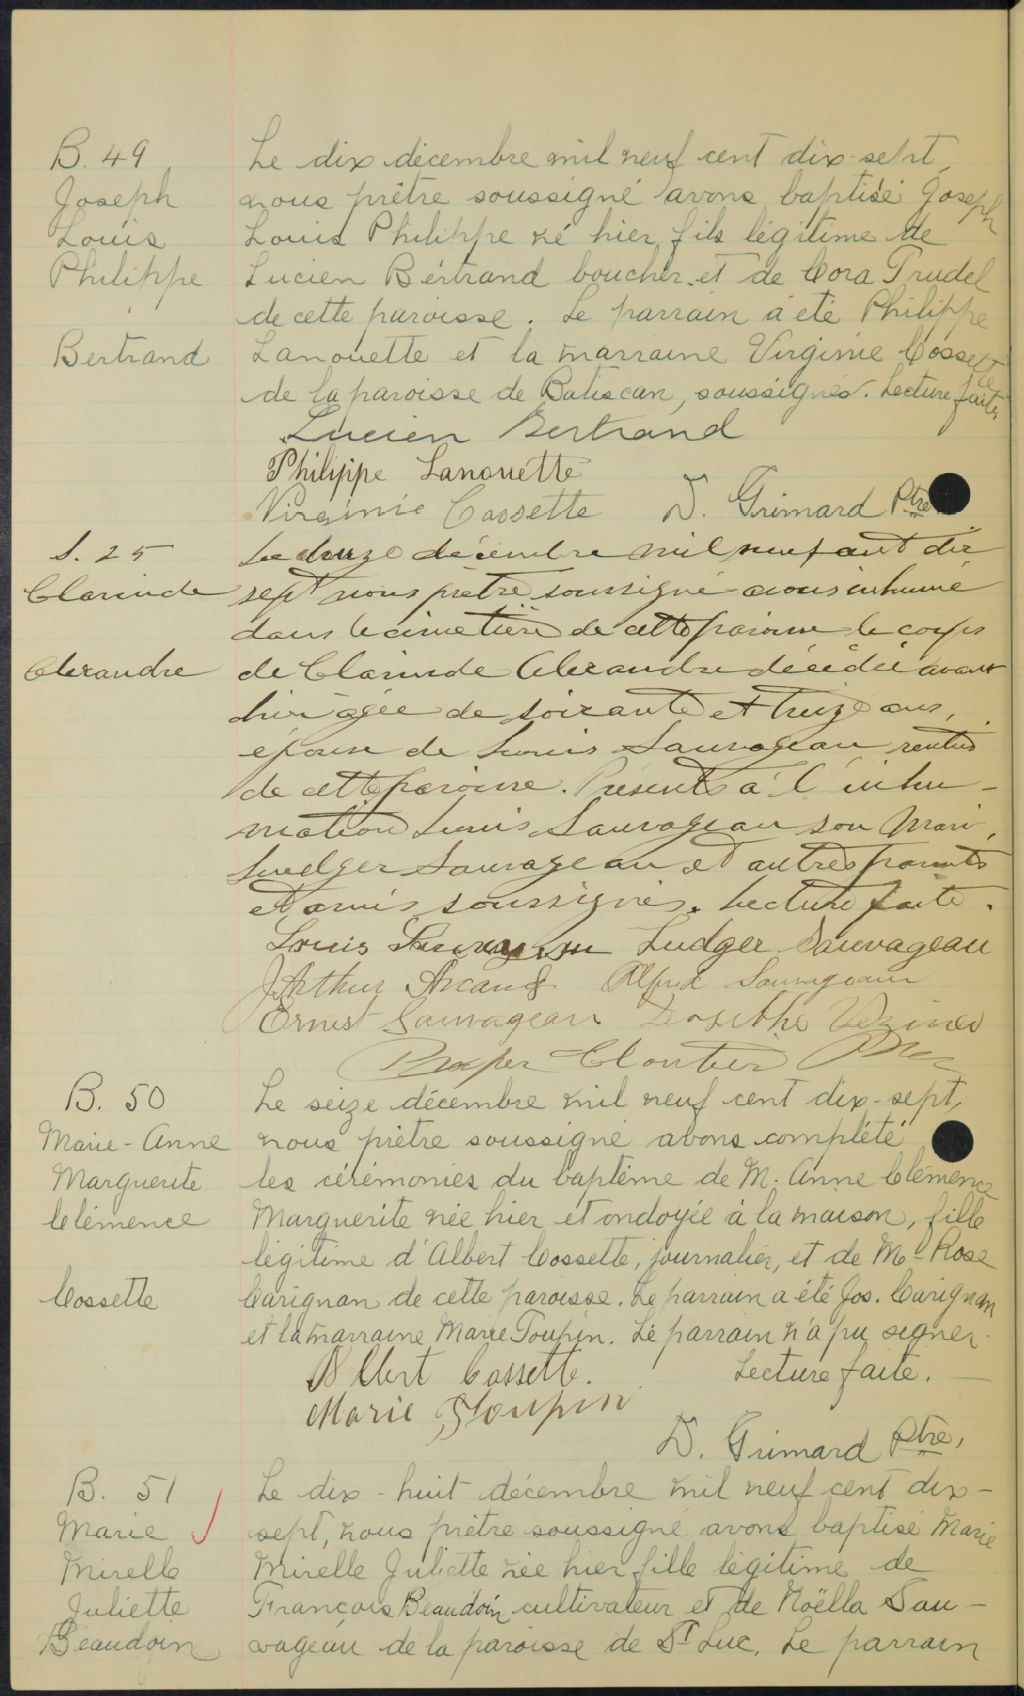 B. 49
Joseph
Louis
Philippe
Bertrand
Le dix décembre mil neuf cent dix-sept
nous prêtre soussigné avons baptisé Joseph
Louis Philippe né hier, fils légitime de
Lucien Bértrand boucher et de Cora Trudel
de cette paroisse. Le parrain a été Philippe
Lanouette et la marraine Virginie Cossette
de la paroisse de Batiscan, soussignés. Lecture faite.
Lucien Bertrand
Philippe Lanouette
Virginie Cossette D. Grimard Ptre
S. 25
Clarinde
Alexandre
Le douze décembre mil neuf cent dix
sept nous prêtre soussigné avons inhumé
dans le cimetière de cette paroisse le corps
de Clarinde Alexandre décédée avant
hier âgée de soixante et treize ans,
épouse de Louis Sauvageau rentier
de cette paroisse. Présents à l'inhu-
mation Louis Sauvageau son mari,
Ludger Sauvageau et autres parents
et amis soussignés. Lecture faite.
Louis Sauvageau Ludger Sauvageau
J Arthur Arcand Alfred Sauvageau
Ernest Sauvageau Dosithé Vézina
Prosper Cloutier Ptre
B. 50
Marie-Anne
Marguerite
Clémence
Cossette
Le seize décembre mil neuf cent dix-sept,
nous prêtre soussigné avons complété
les cérémonies du baptême de M. Anne Clémence
Marguerite née hier et ondoyée à la maison, fille
légitime d'Albert Cossette, journalier, et de Me Rose
Carignan de cette paroisse. Le parrain a été Jos. Carignan
et la marraine Marie Toupin. Le parrain n'a pu signer.
Albert Cossette. Lecture faite.
Marie Toupin
D. Grimard Ptre,
B. 51
Marie
Mirelle
Juliette
Beaudoin
Le dix-huit décembre mil neuf cent dix-
sept, nous prêtre soussigné avons baptisé Marie
Mirelle Juliette née hier, fille légitime de
François Beaudoin cultivateur et de Noëlla Sau-
vageau de la paroisse de St Luc. Le parrain